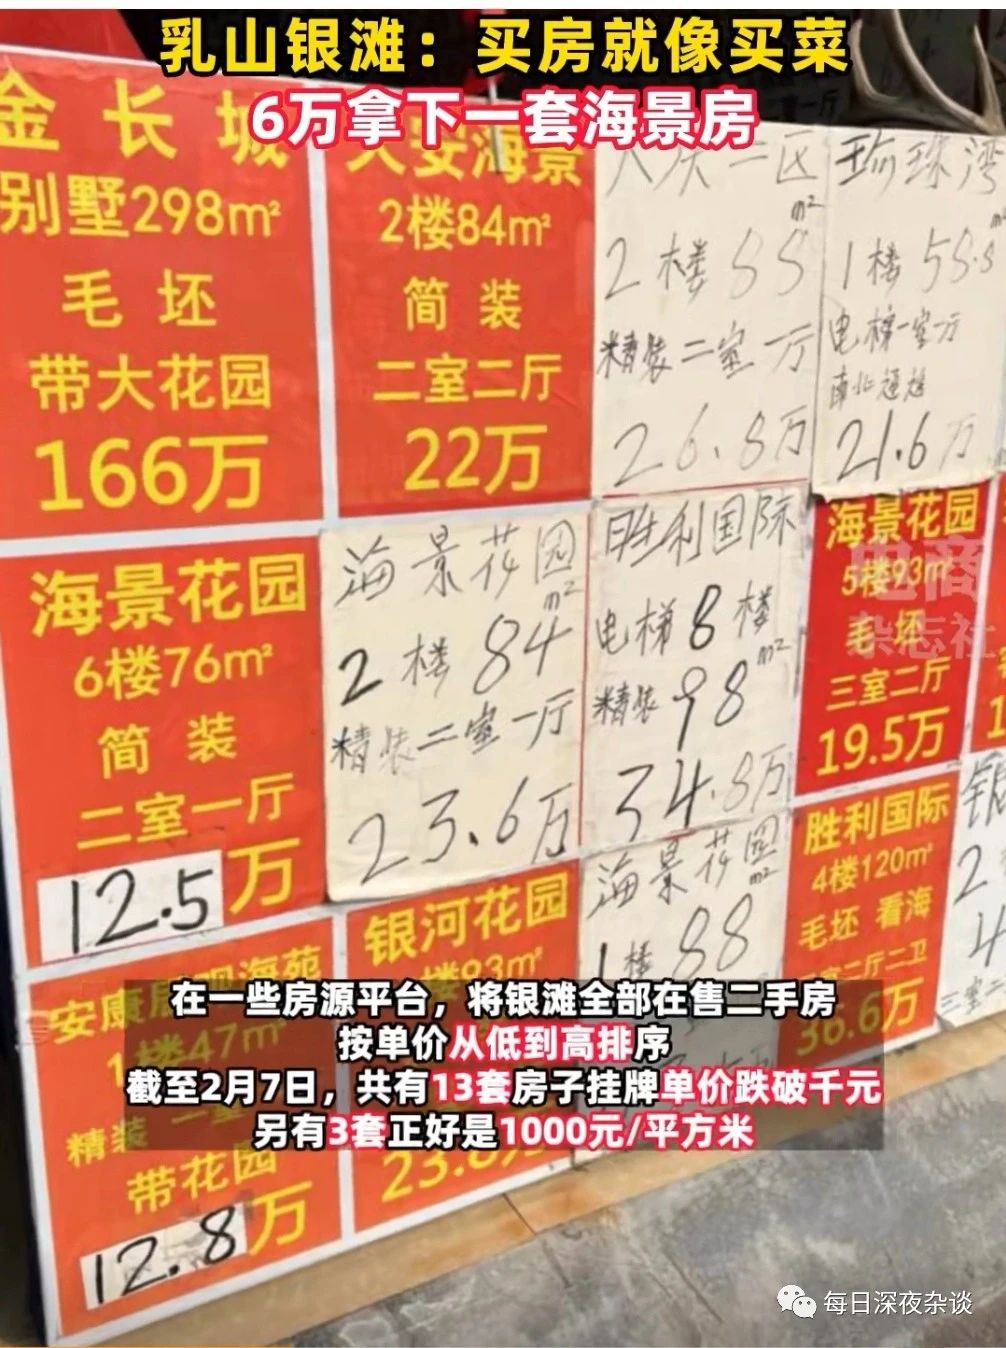 乳山银滩：买房就像买菜
6万拿下一套海景房
金长城
别墅298m²
毛坯
带大花园
166万
大安海景
2楼84m²
简装
二室二厅
22万
二区
m²
2楼88
精装二室一厅
26.8万
珍珠湾
1楼58.8
电梯一室一厅
南北通透
21.6万
海景花园
6楼76m²
简装
二室一厅
12.5万
海景花园
m²
2楼84
精装二室一厅
23.6万
胜利国际
电梯8楼
m²
精装98
34.8万
海景花园
5楼93m²
毛坯
三室二厅
19.5万
电商
杂志社
安康居观海苑
1楼47m²
精装一室
带花园
12.8万
银河花园
楼93m²
23.8万
海景花园
m²
1楼88
胜利国际
4楼120m²
毛坯 看海
室二厅二卫
36.6万
银
2
4
三室二
在一些房源平台，将银滩全部在售二手房
按单价从低到高排序
截至2月7日，共有13套房子挂牌单价跌破千元
另有3套正好是1000元/平方米
每日深夜杂谈